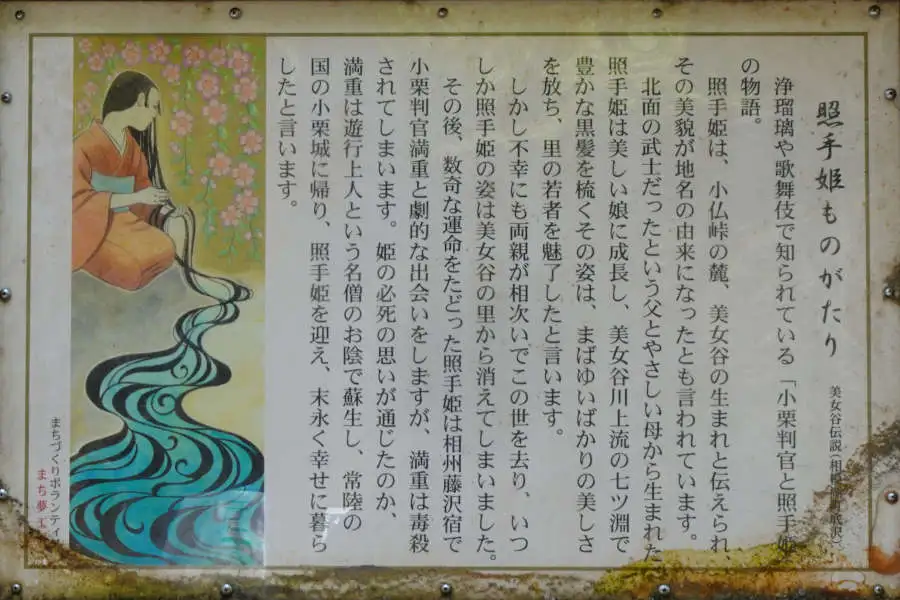 照手姫ものがたり
美女谷伝説(相
浄瑠璃や歌舞伎で知られている「小栗判官と照手姫」
の物語。
照手姫は、小仏峠の麓、美女谷の生まれと伝えられ、
その美貌が地名の由来になったとも言われています。
北面の武士だったという父とやさしい母から生まれた
照手姫は美しい娘に成長し、美女谷川上流の七ツ淵で
豊かな黒髪を梳くその姿は、まばゆいばかりの美しさ
を放ち、里の若者を魅了したと言います。
しかし不幸にも両親が相次いでこの世を去り、いつ
しか照手姫の姿は美女谷の里から消えてしまいました。
その後、数奇な運命をたどった照手姫は相州藤沢宿で
小栗判官満重と劇的な出会いをしますが、満重は毒殺
されてしまいます。姫の必死の思いが通じたのか、
満重は遊行上人という名僧のお陰で蘇生し、常陸の
国の小栗城に帰り、照手姫を迎え、末永く幸せに暮ら
したと言います。
まちづくりボランティ
まち夢工